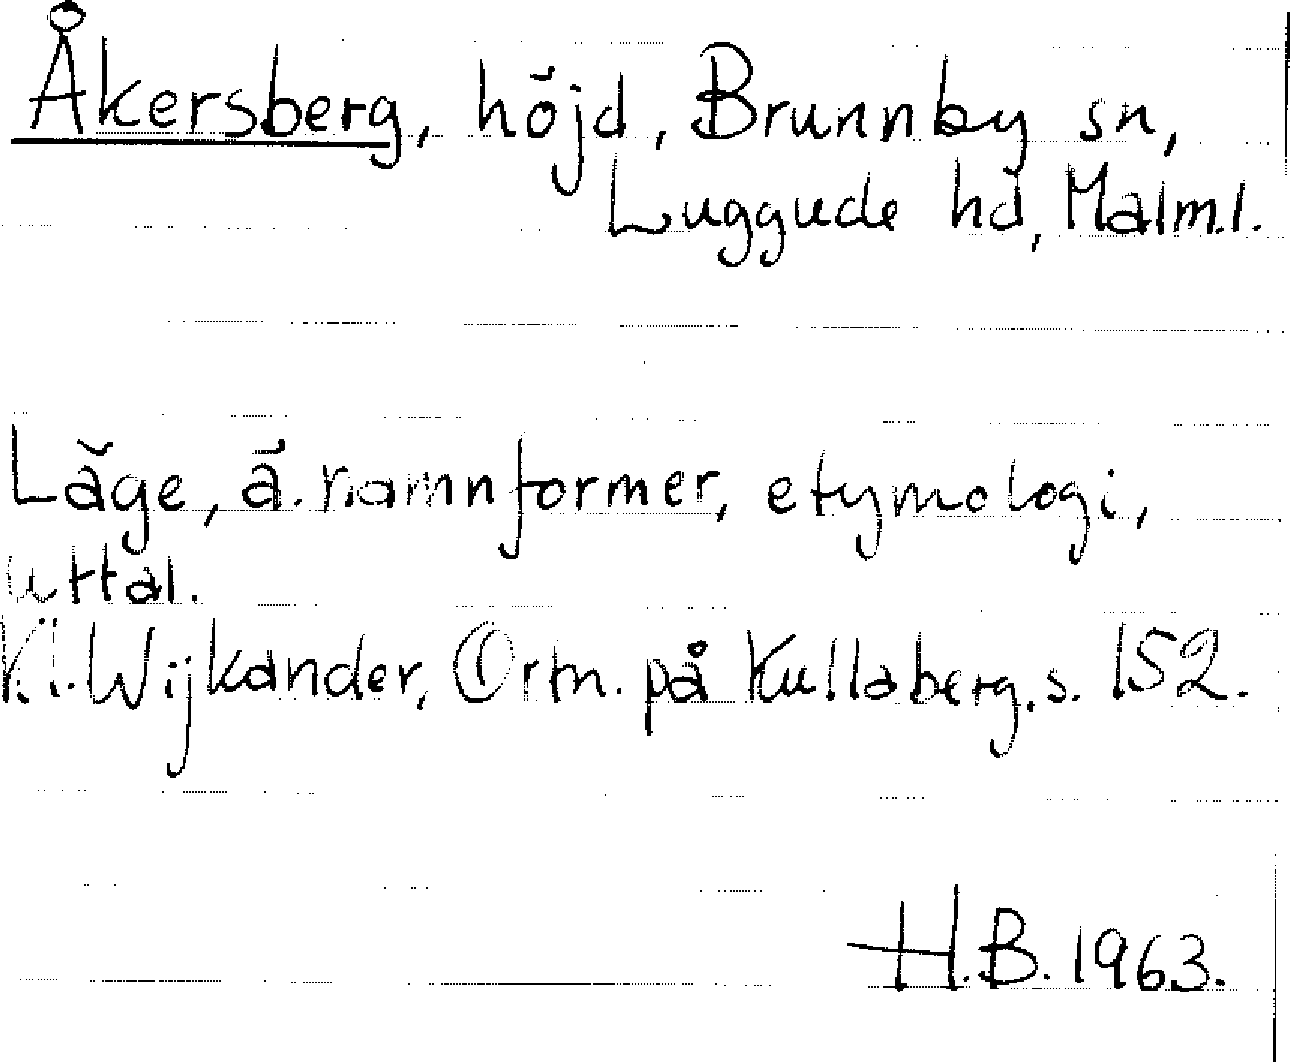 Åkersberg, höjd, Brunnby sn,
Luggude hd, Malm.l.
Läge, ä. namnformer, etymologi,
uttal.
K.I. Wijkander, Ortn. på Kullaberg. s. 152.
H.B. 1963.